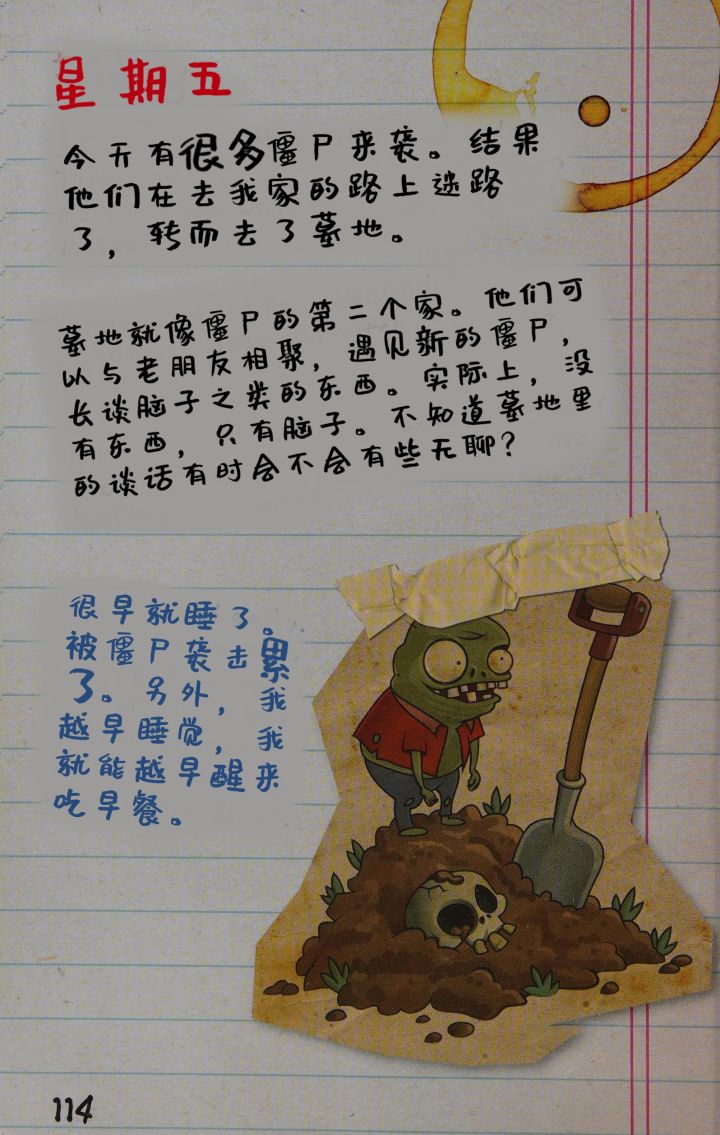 星期五
今天有很多僵尸来袭。结果
他们在去我家的路上迷路
了，转而去了墓地。
墓地就像僵尸的第二个家。他们可
以与老朋友相聚，遇见新的僵尸，
长谈脑子之类的东西。实际上，没
有东西，只有脑子。不知道墓地里
的谈话有时会不会有些无聊？
很早就睡了。
被僵尸袭击累
了。另外，我
越早睡觉，我
就能越早醒来
吃早餐。
114